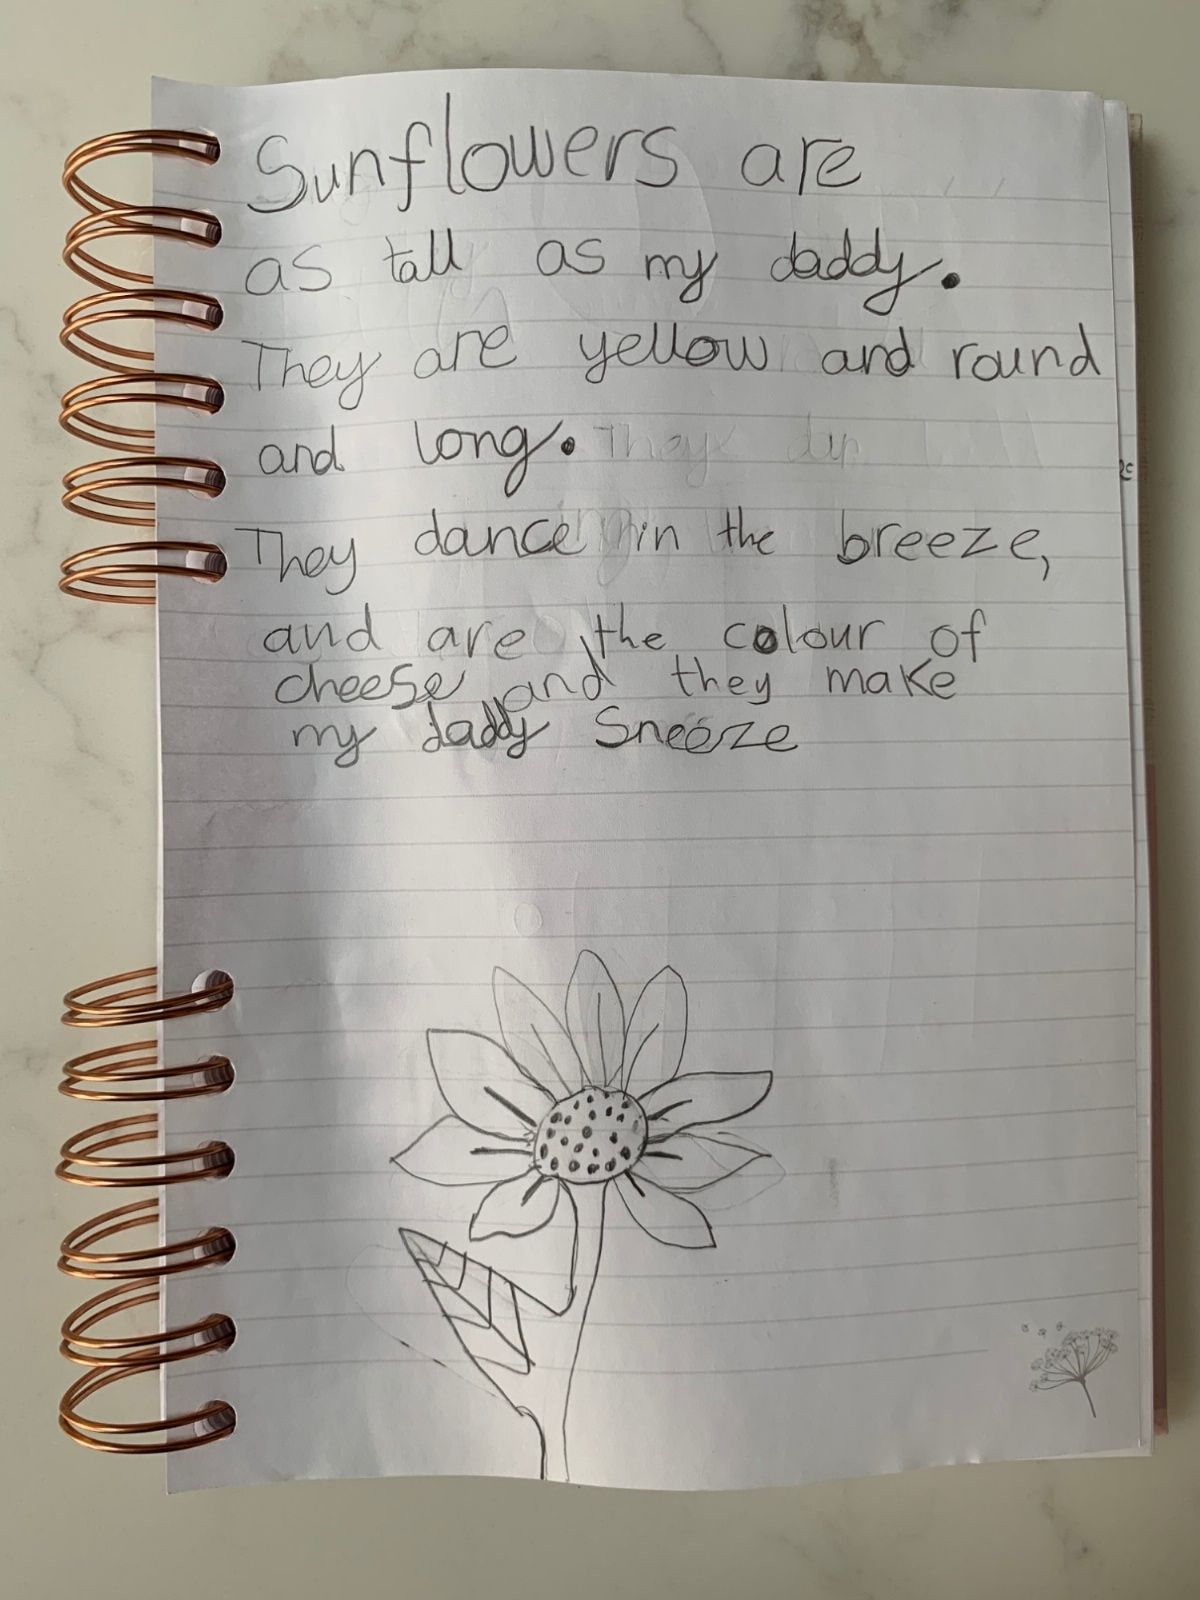 Sunflowers are
as tall as my daddy.
They are yellow and round
and long.
They dance in the breeze,
and are the colour of
cheese and they make
my daddy Sneeze